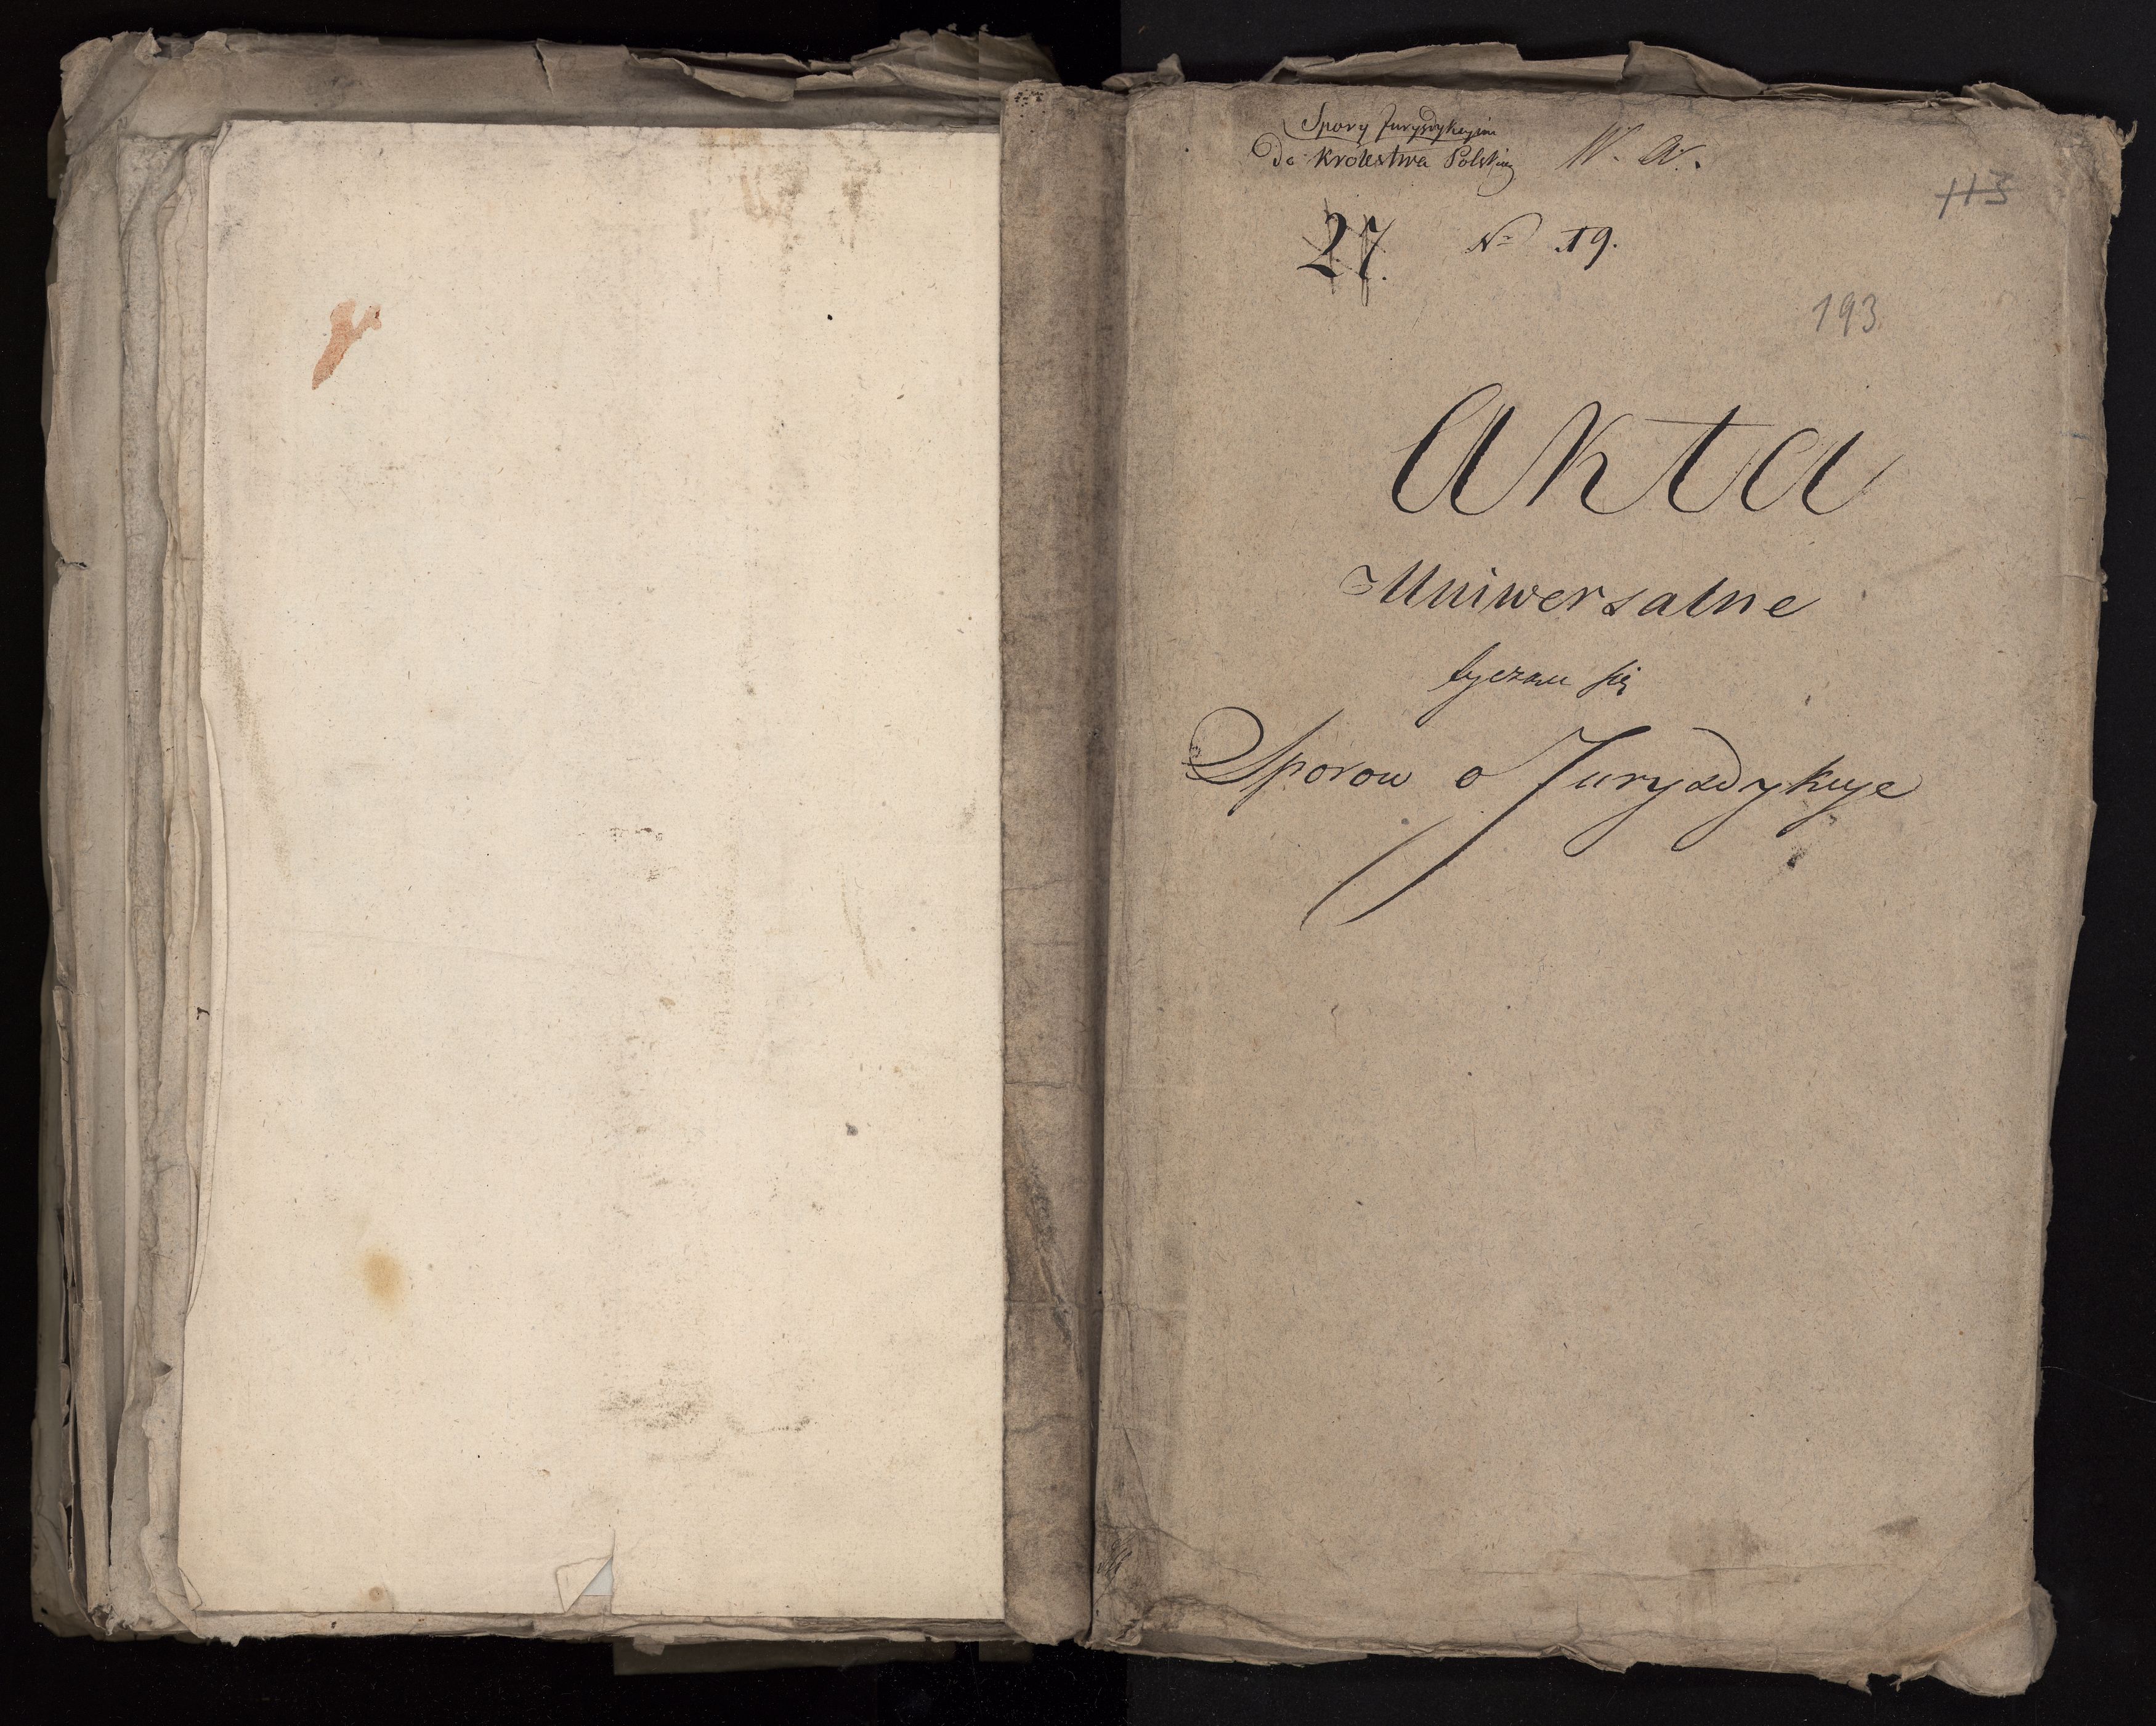 Spory Jurysdykcyine
do Krolestwa Polskiey W. W.
113
27. No 19.
193
Akta
Uniwersalne
tyczące się
Sporow o Juryzdykcye